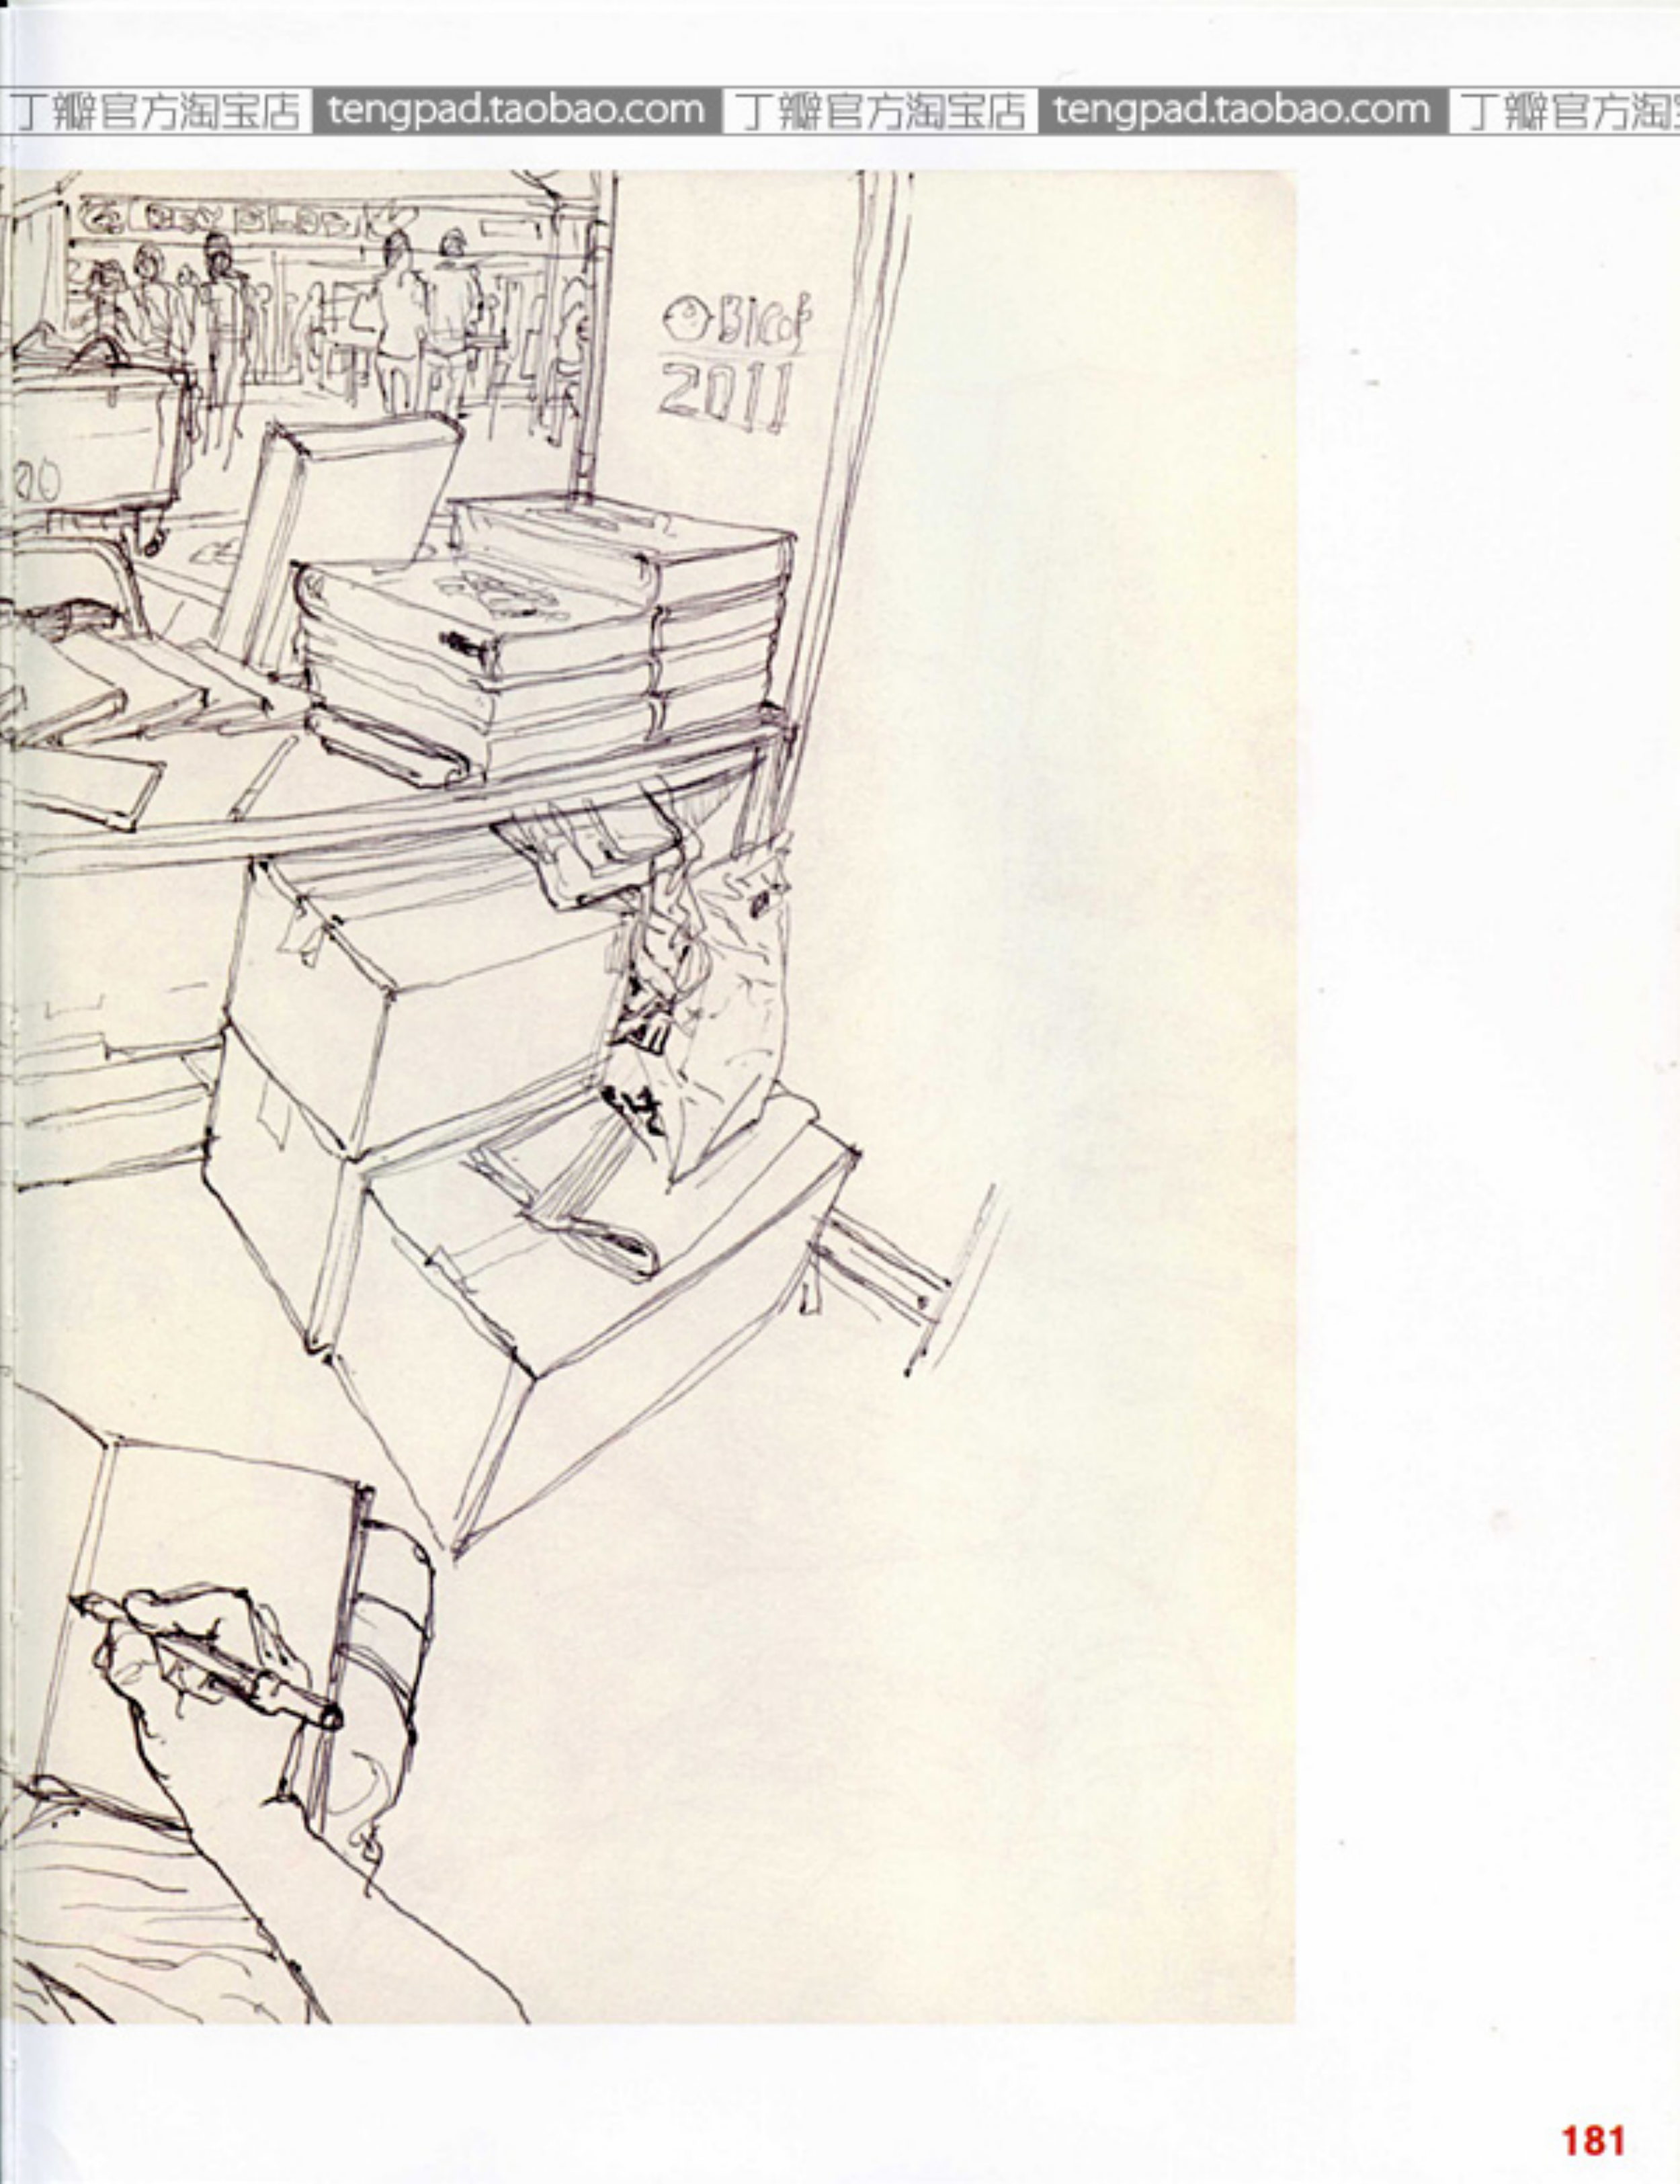 丁瓣官方淘宝店 tengpad.taobao.com 丁瓣官方淘宝店 tengpad.taobao.com 丁瓣官方淘
BICOF
2011
00
181